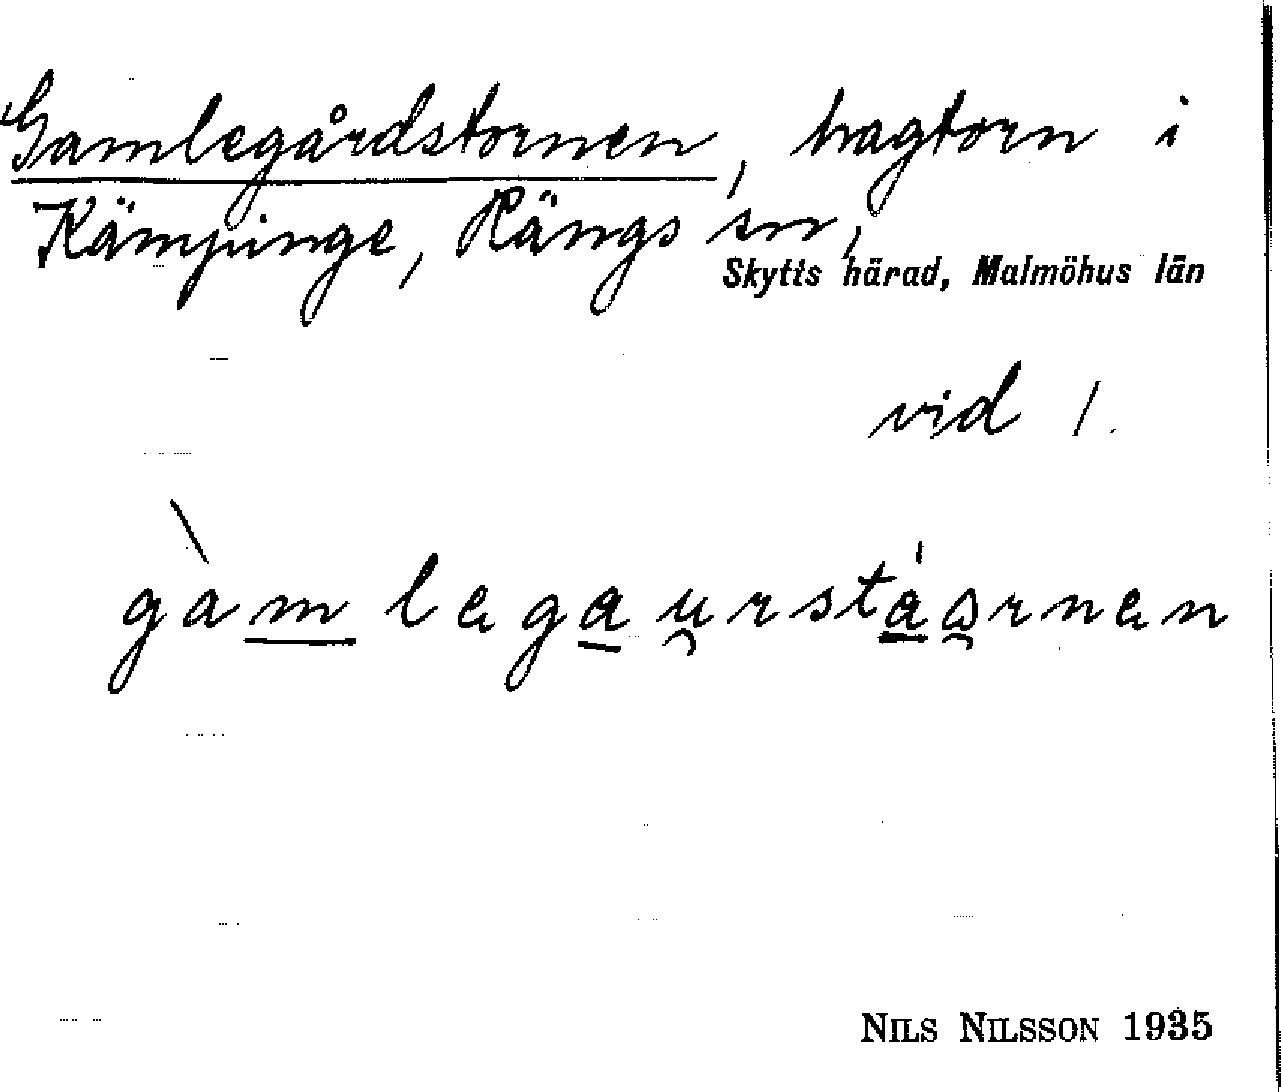 Gamlegårdstornen, hagtorn i
Kämpinge, Rängs sn,
Skytts härad, Malmöhus län
vid 1.
gàmlegau̯rstáo̯rnen
NILS NILSSON 1935